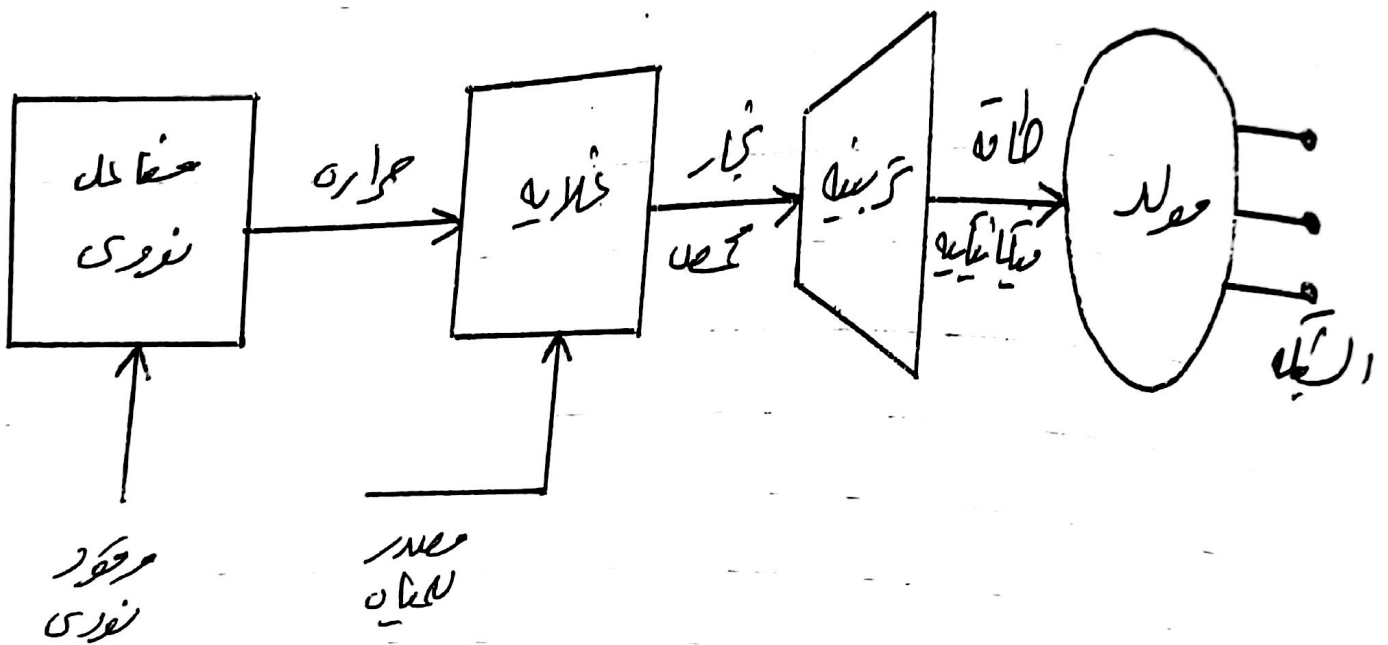 مفاعل
نووى
حراره
غلايه
بخار
محمص
تربينه
طاقه
ميكانيكيه
مولد
الشبكه
وقود
نووى
مصدر
للمياه